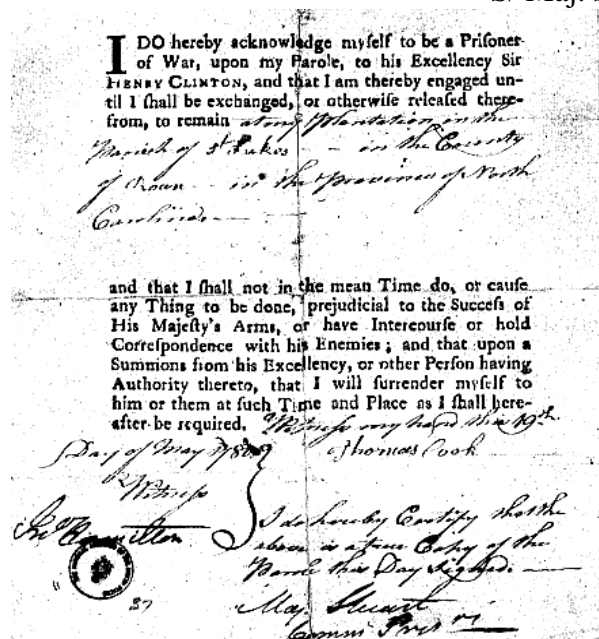 I DO hereby acknowledge myself to be a Prisoner
of War, upon my Parole, to his Excellency Sir
HENRY CLINTON, and that I am thereby engaged un-
til I shall be exchanged, or otherwise released there-
from, to remain at my Plantation in the
Parish of St Lukes — in the County
of Rowan — in the Province of North
Carolina —
and that I shall not in the mean Time do, or cause
any Thing to be done, prejudicial to the Success of
His Majesty's Arms, or have Intercourse or hold
Correspondence with his Enemies; and that upon a
Summons from his Excellency, or other Person having
Authority thereto, that I will surrender myself to
him or them at such Time and Place as I shall here-
after be required. Witness my hand this 19th
Day of May 1780 Thomas Cook
Witness
I do hereby Certify that the
above is a true Copy of the
Parole this Day Signed. —
Hamilton
37
Maj. Stuart